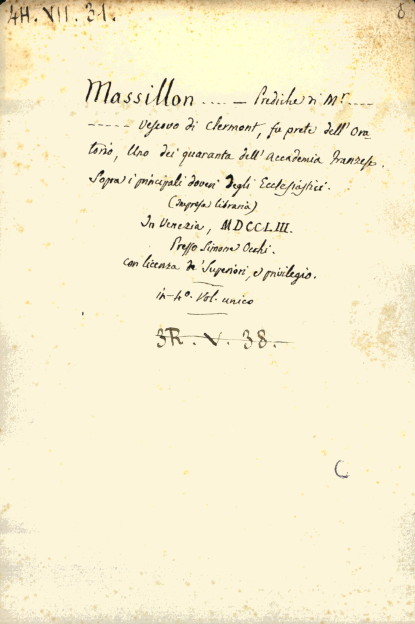 4H. VII. 31.
Massillon .... — Prediche di Mr ----
----- Vescovo di Clermont, fu prete dell' Ora-
torio, Uno dei quaranta dell' Accademia Franzese.
Sopra i principali doveri degli Ecclesiastici.
(Impresa libraria)
In Venezia, MDCCLIII.
Presso Simone Occhi.
con licenza de' Superiori, e privilegio.
in-4º. Vol. unico
3R. V. 38.
C